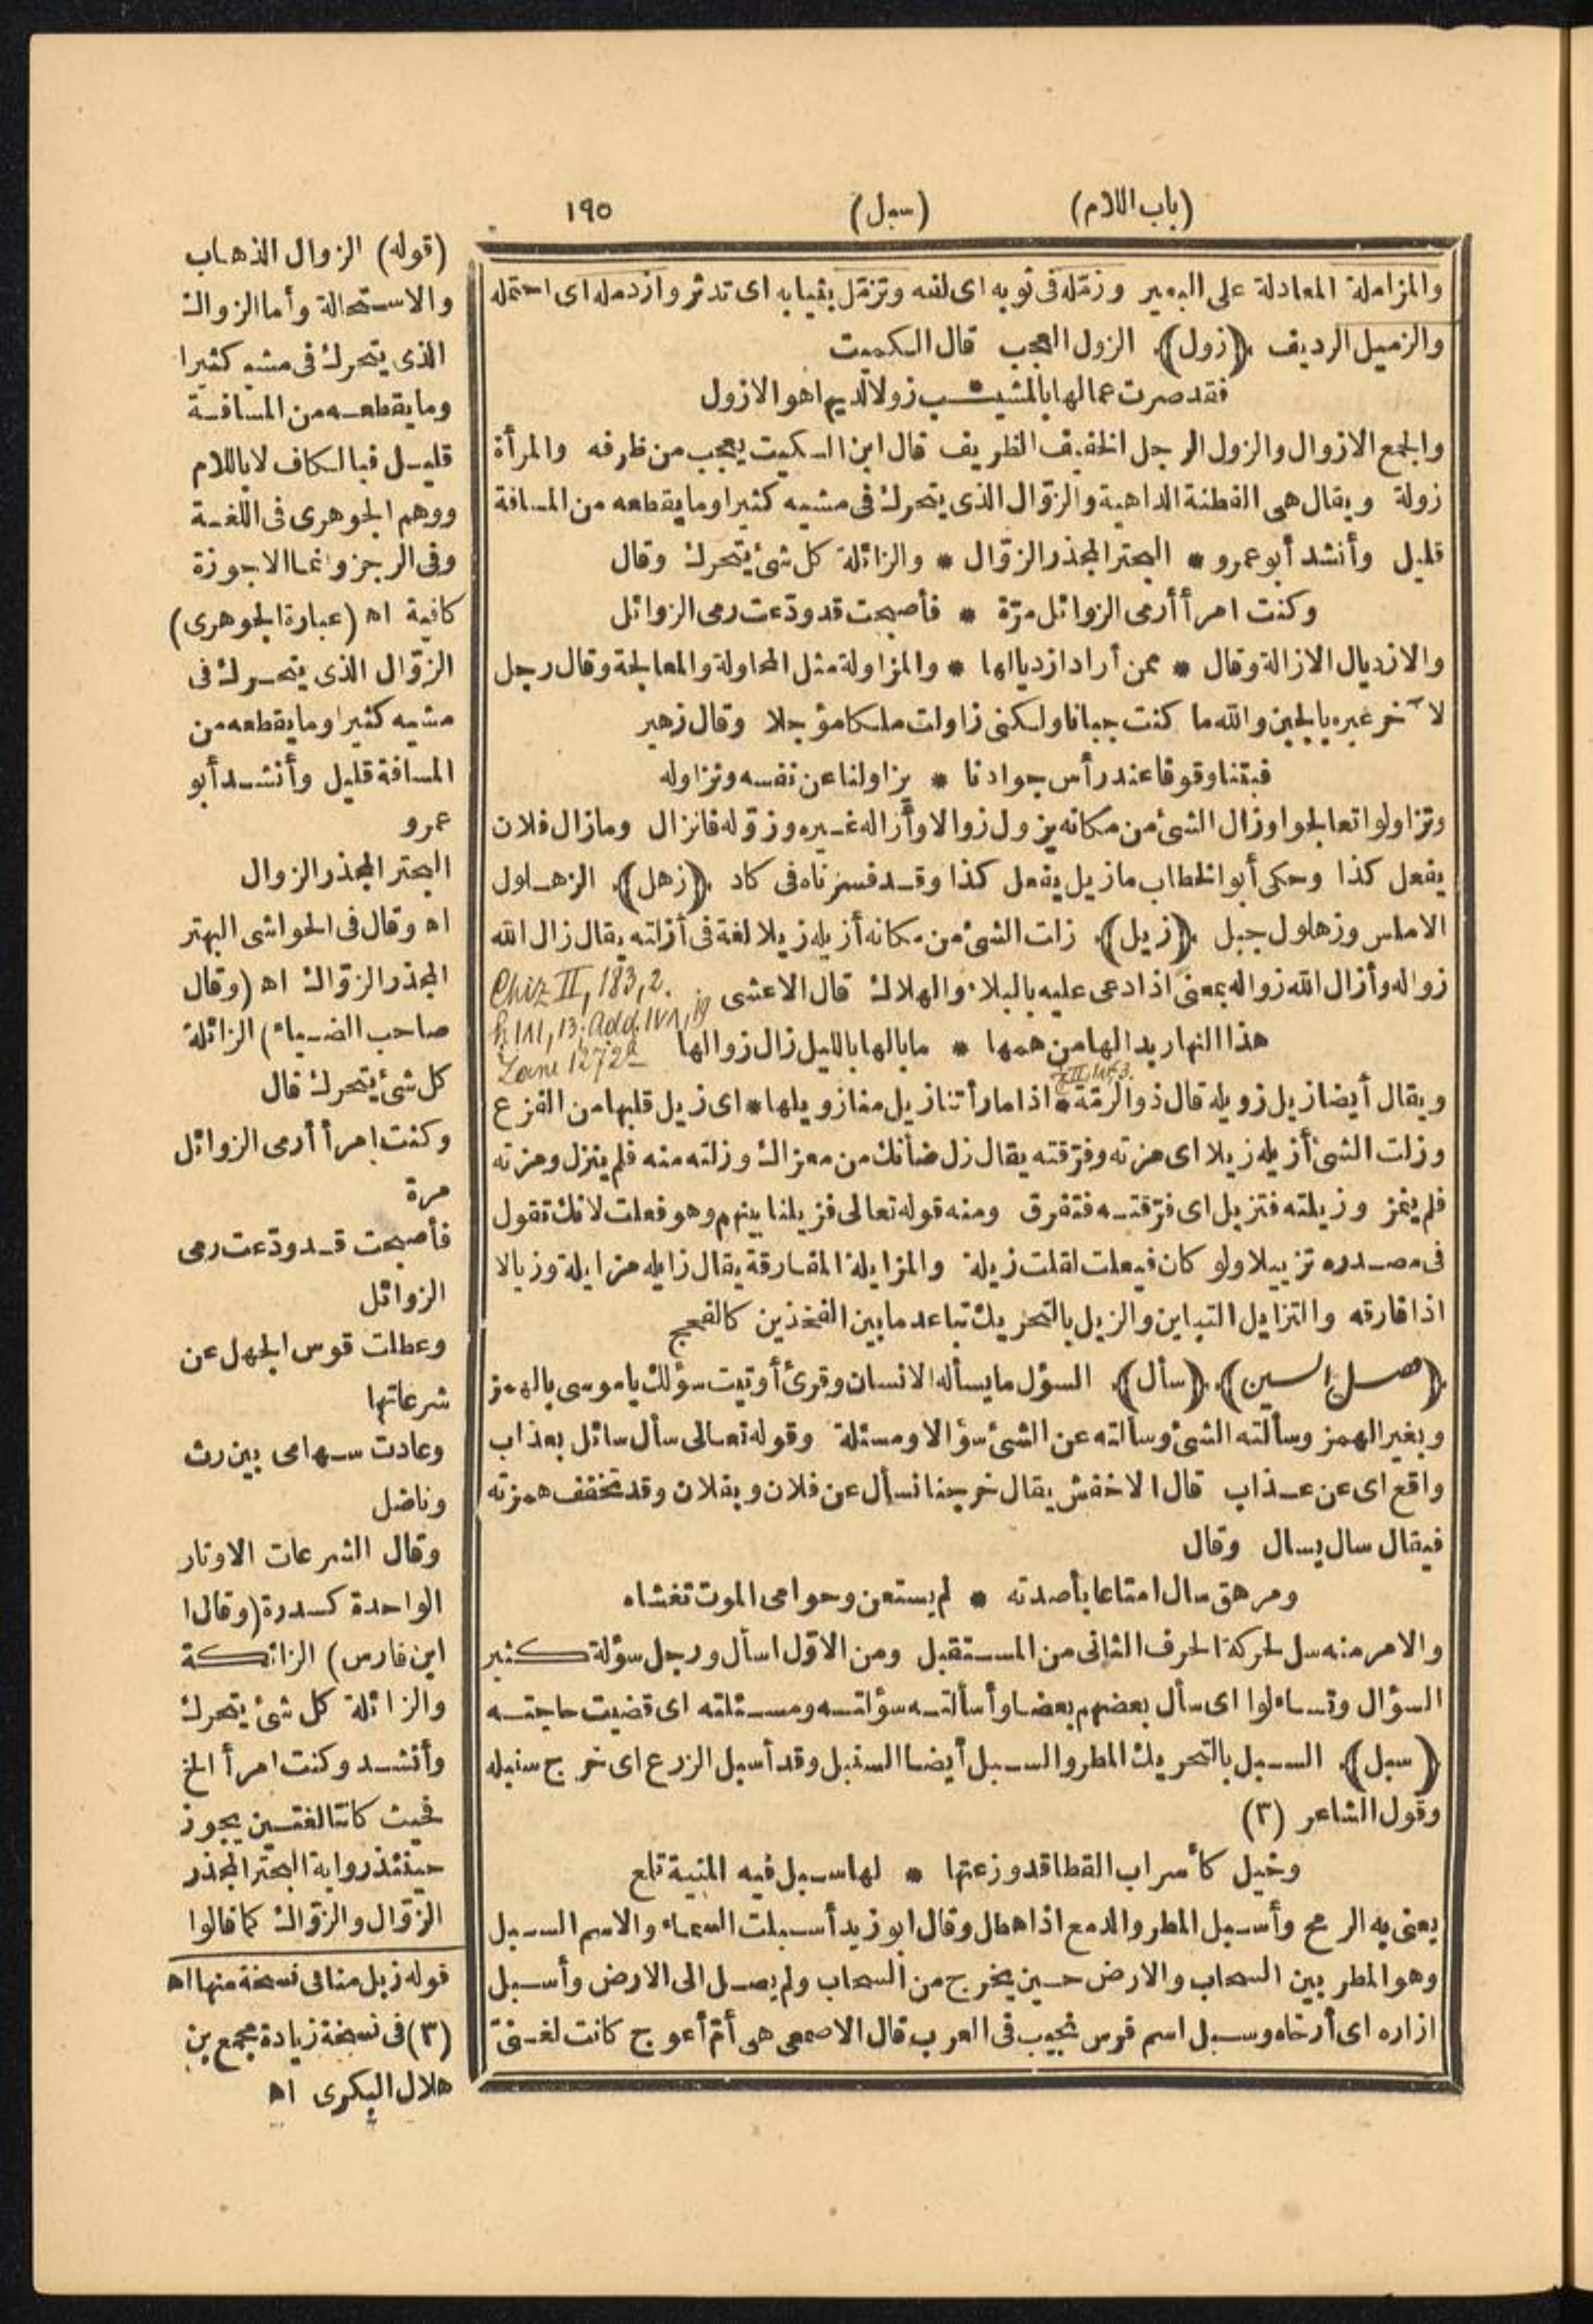 (باب اللام)
(سبل)
١٩٥
والمزاملة المعادلة على البعير وزمّله فى ثوبه اى لفه وتزمّل بثيابه اى تدثر وازدمله اى احتمله
والزميل الرديف ﴿زول﴾ الزول العجب قال الكميت
فقد صرت عمالها بالمشيـــب زولا لديها هو الازول
والجمع الازوال والزول الرجل الخفيف الظريف قال ابن السكيت يعجب من ظرفه والمرأة
زولة ويقال هى الفطنة الداهية والزوّال الذى يتحرك فى مشيه كثيرا وما يقطعه من المسافة
قليل وأنشد أبو عمرو * البحتر المجذر الزوّال * والزائلة كل شئ يتحرك وقال
وكنت امرأ أرمى الزوائل مرّة * فأصبحت قد ودّعت رمى الزوائل
والازديال الازالة وقال * ممن أراد ازديالها * والمزاولة مثل المحاولة والمعالجة وقال رجل
لآخر عيره بالجبن والله ما كنت جبانا ولكنى زاولت ملكا مؤجلا وقال زهير
فبتنا وقوفا عند رأس جوادنا * يزاولنا عن نفسه ونزاوله
وتزاولوا تعالجوا وزال الشئ من مكانه يزول زوالا وأزاله غيره وزوّله فانزال وما زال فلان
يفعل كذا وحكى أبو الخطاب ما زيل يفعل كذا وقد فسرناه فى كاد ﴿زهل﴾ الزهلول
الاملس وزهلول جبل ﴿زيل﴾ زلت الشئ من مكانه أزيله زيلا لغة فى أزلته يقال زال الله
زواله وأزال الله زواله بمعنى اذا دعى عليه بالبلاء والهلاك قال الاعشى
Chiz II, 183, 2.
هذا النهار بدا لها من همها * ما بالها بالليل زال زوالها
Lane 1272
ويقال أيضا زيل زويله قال ذو الرمّة * اذا ما رأتنا زيل منا زويلها * اى زيل قلبها من الفزع
وزلت الشئ أزيله زيلا اى مزته وفرّقته يقال زل ضأنك من معزاك وزلته منه فلم ينزل ومزته
فلم ينمز وزيلته فتزيل اى فرّقته فتفرق ومنه قوله تعالى فزيلنا بينهم وهو فعلت لانك تقول
فى مصدره تزييلا ولو كان فيعلت لقلت زيلة والمزايلة المفارقة يقال زايله مزايلة وزيالا
اذا فارقه والتزايل التباين والزيل بالتحريك تباعد ما بين الفخذين كالفحج
﴿فصل السين﴾ ﴿سأل﴾ السؤل ما يسأله الانسان وقرئ أوتيت سؤلك يا موسى بالهمز
وبغير الهمز وسألته الشئ وسألته عن الشئ سؤالا ومسئلة وقوله تعالى سأل سائل بعذاب
واقع اى عن عذاب قال الاخفش يقال خرجنا نسأل عن فلان وبفلان وقد تخفف همزته
فيقال سال يسال وقال
ومرهق سال امتاعا بأصدته * لم يستعن وحوامى الموت تغشاه
والامر منه سل لحركة الحرف الثانى من المستقبل ومن الاوّل اسأل ورجل سؤلة كثير
السؤال وتساءلوا اى سأل بعضهم بعضا وأسألته سؤلته ومسئلته اى قضيت حاجته
﴿سبل﴾ السبل بالتحريك المطر والسبل أيضا السنبل وقد أسبل الزرع اى خرج سنبله
وقول الشاعر (٣)
وخيل كأسراب القطا قد وزعتها * لها سبل فيه المنية تلمع
يعنى به الرمح وأسبل المطر والدمع اذا هطل وقال ابو زيد أسبلت السماء والاسم السبل
وهو المطر بين السحاب والارض حين يخرج من السحاب ولم يصل الى الارض وأسبل
ازاره اى أرخاه وسبل اسم فرس نجيب فى العرب قال الاصمعى هى أمّ أعوج كانت لغنىّ
(قوله) الزوال الذهاب
والاستحالة وأما الزوال
الذى يتحرك فى مشيه كثيرا
وما يقطعه من المسافة
قليل فبالكاف لا باللام
ووهم الجوهرى فى اللغة
وفى الرجز وانما الارجوزة
كافية اه (عبارة الجوهرى)
الزوّال الذى يتحرك فى
مشيه كثيرا وما يقطعه من
المسافة قليل وأنشد أبو
عمرو
البحتر المجذر الزوال
اه وقال فى الحواشى البهتر
المجذر الزوّاك اه (وقال
صاحب الضياء) الزائلة
كل شئ يتحرك قال
وكنت امرأ أرمى الزوائل
مرة
فأصبحت قد ودّعت رمى
الزوائل
وعطلت قوس الجهل عن
شرعاتها
وعادت سهامى بين رث
وناضل
وقال الشرعات الاوتار
الواحدة كسدرة (وقال
ابن فارس) الزائكة
والزائلة كل شئ يتحرك
وأنشد وكنت امرأ الخ
فحيث كانتا لغتين يجوز
حينئذ رواية البحتر المجذر
الزوّال والزوّاك كما قالوا
قوله زيل منا فى نسخة منها اه
(٣) فى نسخة زيادة مجمع بن
هلال البكرى اه